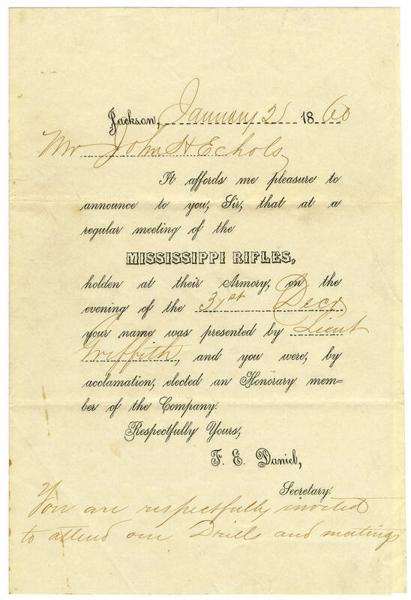 Jackson, January 21 1860
Mr John H Echols,
It affords me pleasure to
announce to you, Sir, that at a
regular meeting of the
MISSISSIPPI RIFLES,
holden at their Armory, on the
evening of the 31st Decr
your name was presented by Lieut
Griffith, and you were, by
acclamation, elected an Honorary mem-
ber of the Company.
Respectfully Yours,
F. E. Daniel,
Secretary.
You are respectfully invited
to attend our Drills and meetings